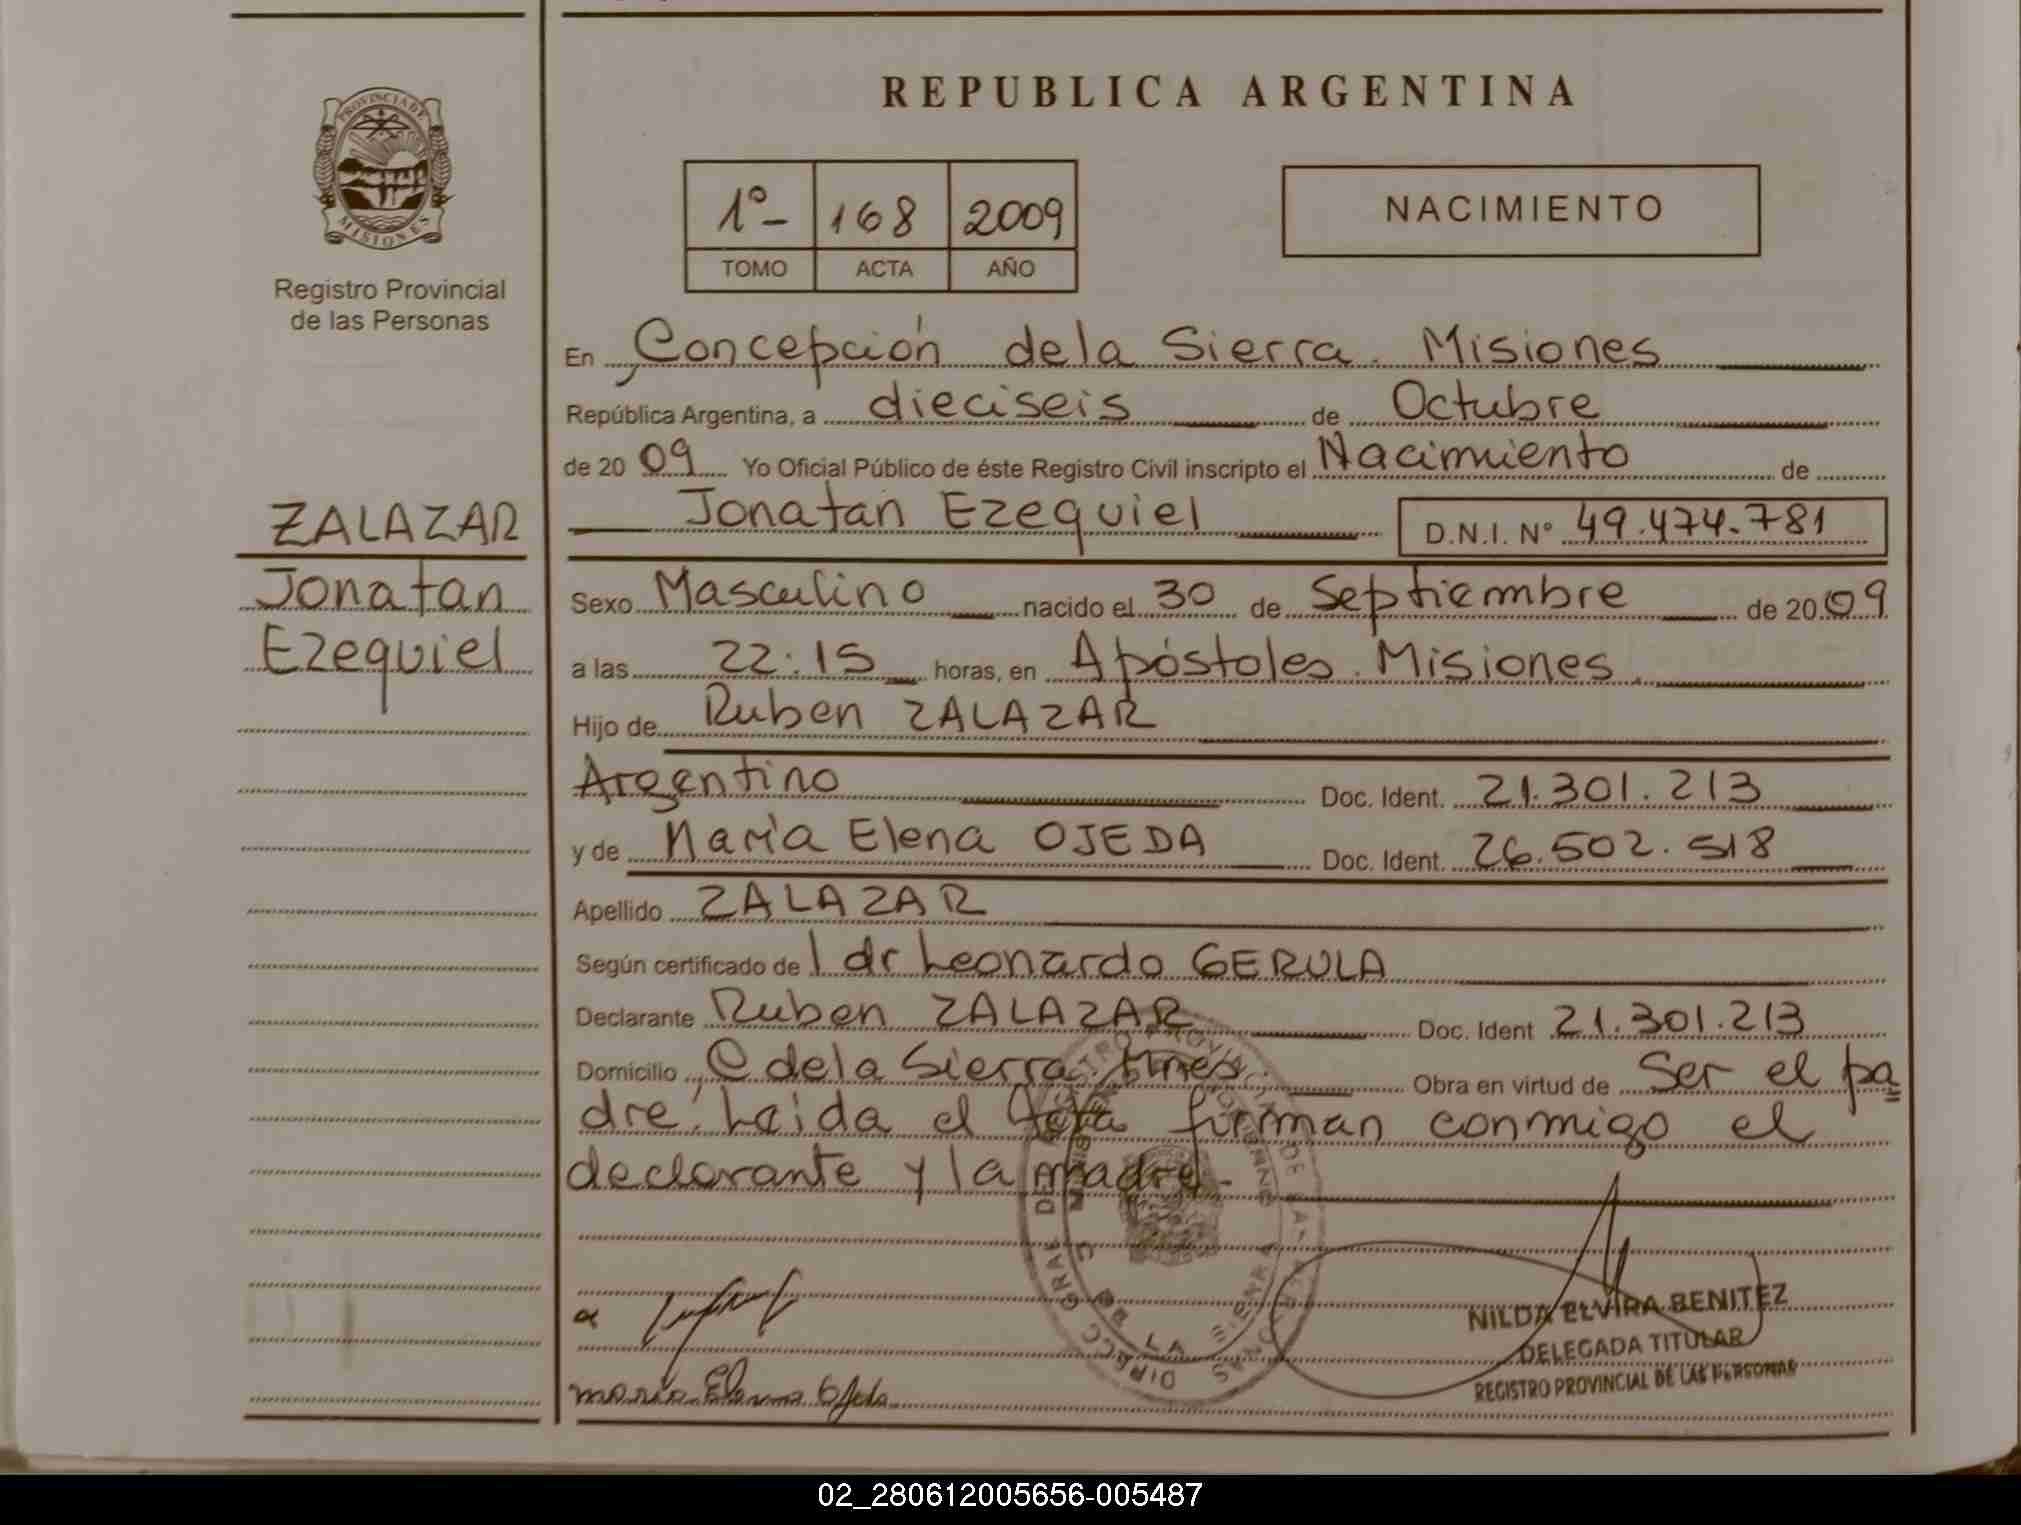 REPUBLICA ARGENTINA
PROVINCIA DE MISIONES
Registro Provincial
de las Personas
1º- 168 2009
TOMO ACTA AÑO
NACIMIENTO
En Concepción de la Sierra. Misiones
República Argentina, a dieciseis de Octubre
de 2009 Yo Oficial Público de éste Registro Civil inscripto el Nacimiento de
Jonatan Ezequiel D.N.I. Nº 49.474.781
ZALAZAR
Jonatan
Ezequiel
Sexo Masculino nacido el 30 de Septiembre de 2009
a las 22:15 horas, en Apóstoles. Misiones.
Hijo de Ruben ZALAZAR
Argentino Doc. Ident. 21.301.213
y de María Elena OJEDA Doc. Ident. 26.502.518
Apellido ZALAZAR
Según certificado de l dr Leonardo GERULA
Declarante Ruben ZALAZAR Doc. Ident 21.301.213
Domicilio C de la Sierra. Mnes. Obra en virtud de Ser el pa
dre. Leida el Acta firman conmigo el
declarante y la madre.-
NILDA ELVIRA BENITEZ
DELEGADA TITULAR
REGISTRO PROVINCIAL DE LAS PERSONAS
maria Elena Ojeda
02_280612005656-005487